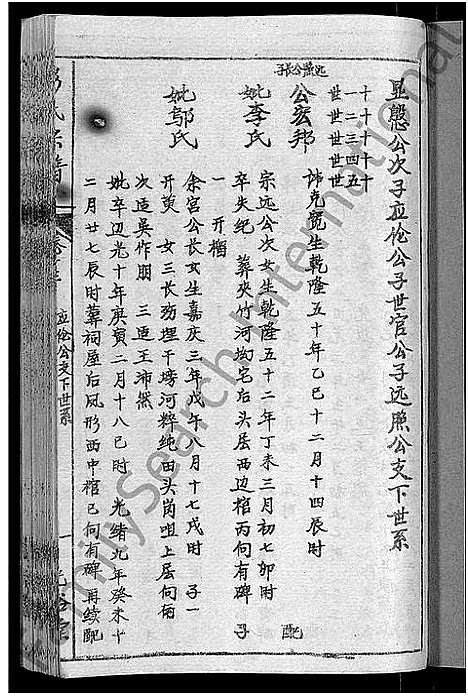 显懿公次子应伦公子世官公子远照公支下世系
十一世
十二世
十三世
十四世
十五世
远照公长子
公宏邦
讳克宽生乾隆五十年乙巳十二月十四辰时 配
妣李氏
宗远公次女生乾隆五十二年丁未三月初七卯时
卒失纪 葬夹竹河坳宅后头居西边棺丙向有碑 子
一 开榴
妣邬氏
余宫公长女生嘉庆三年戊午八月十七戌时 子一
开萸 女三长殇埋干塝河粹纯田头岗咀上居向丙
次适吴作朋 三适王沛然
妣卒辺光十年庚寅二月十八巳时 光绪九年癸未十
二月廿七辰时葬祠屋后凤形西中棺巳向有碑 再续配
氏宗谱
卷
应伦公支下世系
一
FamilySearch International